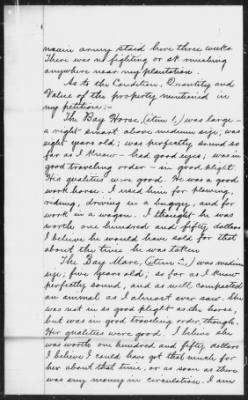 main army staid here three weeks
There was no fighting or skirmishing
anywhere near my plantation.
As to the Condition, Quantity and
Value of the property mentioned in
my petition:-
The Bay Horse, (item 1,) was large -
a right smart above medium size; was
eight years old; was perfectly sound so
far as I know - had good eyes; was in
good traveling order - in good plight.
His qualities were good. He was a good
work horse. I used him for plowing,
riding, driving in a buggy, and for
work in a wagon. I thought he was
worth one hundred and fifty dollars
I believe he would have sold for that
about the time he was taken
The Bay Mare, (item 2,) was medium
size; five years old; so far as I know
perfectly sound, and as well compacted
an animal as I almost ever saw. She
was not in as good plight as the horse,
but was in good traveling order, though.
Her qualities were good. I believe she
was worth one hundred and fifty dollars
I believe I could have got that much for
her about that time, or as soon as there
was any money in circulation. I am